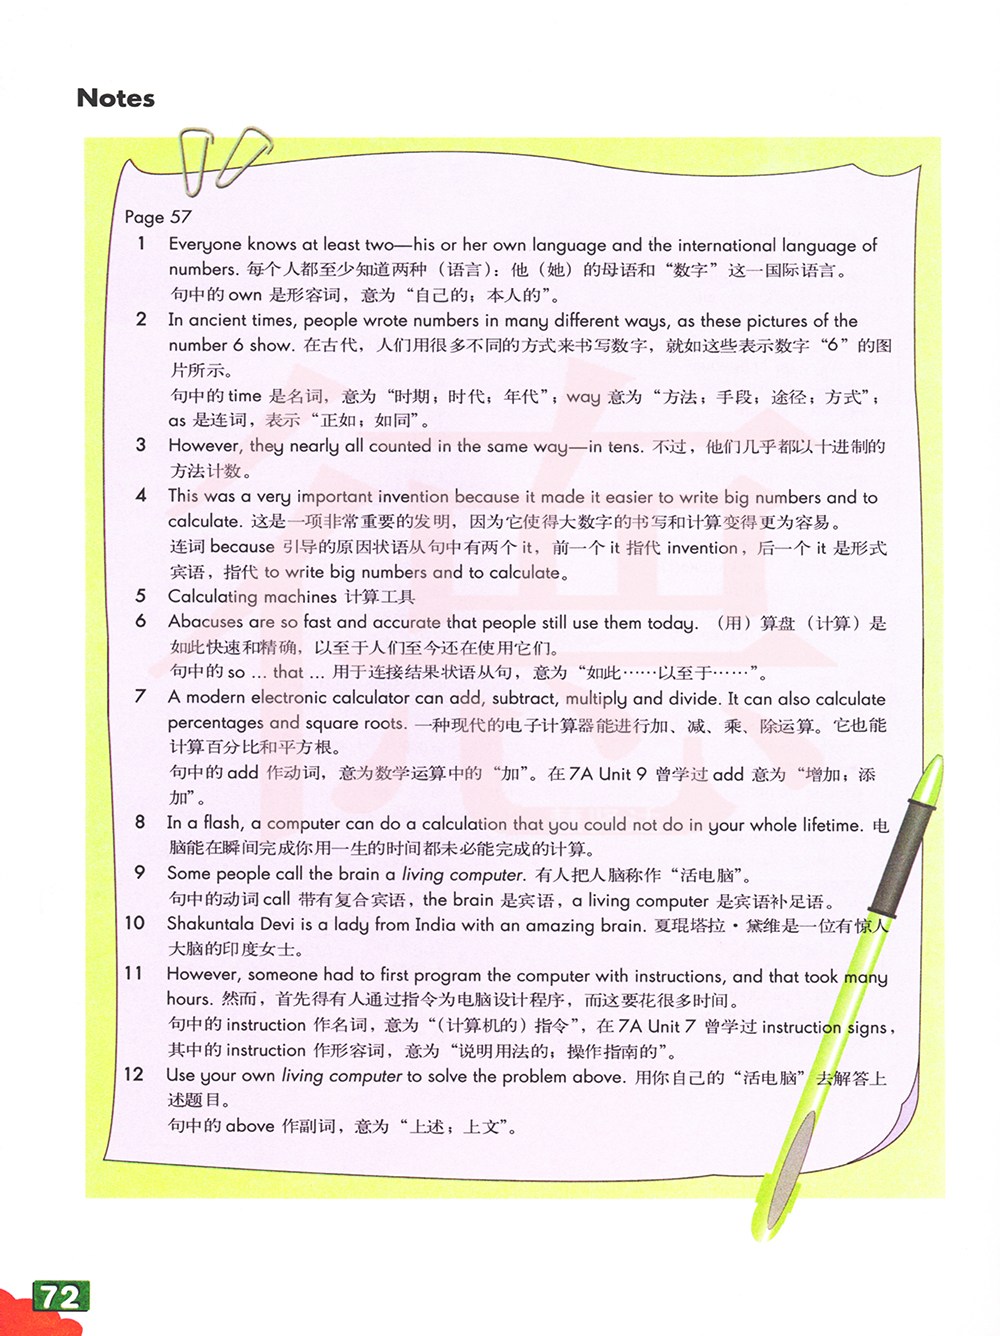 Notes
Page 57
1 Everyone knows at least two—his or her own language and the international language of
numbers. 每个人都至少知道两种（语言）：他（她）的母语和“数字”这一国际语言。
句中的 own 是形容词，意为“自己的；本人的”。
2 In ancient times, people wrote numbers in many different ways, as these pictures of the
number 6 show. 在古代，人们用很多不同的方式来书写数字，就如这些表示数字“6”的图
片所示。
句中的 time 是名词，意为“时期；时代；年代”；way 意为“方法；手段；途径；方式”；
as 是连词，表示“正如；如同”。
3 However, they nearly all counted in the same way—in tens. 不过，他们几乎都以十进制的
方法计数。
4 This was a very important invention because it made it easier to write big numbers and to
calculate. 这是一项非常重要的发明，因为它使得大数字的书写和计算变得更为容易。
连词 because 引导的原因状语从句中有两个 it，前一个 it 指代 invention，后一个 it 是形式
宾语，指代 to write big numbers and to calculate。
5 Calculating machines 计算工具
6 Abacuses are so fast and accurate that people still use them today. （用）算盘（计算）是
如此快速和精确，以至于人们至今还在使用它们。
句中的 so ... that ... 用于连接结果状语从句，意为“如此……以至于……”。
7 A modern electronic calculator can add, subtract, multiply and divide. It can also calculate
percentages and square roots. 一种现代的电子计算器能进行加、减、乘、除运算。它也能
计算百分比和平方根。
句中的 add 作动词，意为数学运算中的“加”。在 7A Unit 9 曾学过 add 意为“增加；添
加”。
8 In a flash, a computer can do a calculation that you could not do in your whole lifetime. 电
脑能在瞬间完成你用一生的时间都未必能完成的计算。
9 Some people call the brain a living computer. 有人把人脑称作“活电脑”。
句中的动词 call 带有复合宾语，the brain 是宾语，a living computer 是宾语补足语。
10 Shakuntala Devi is a lady from India with an amazing brain. 夏琨塔拉·黛维是一位有惊人
大脑的印度女士。
11 However, someone had to first program the computer with instructions, and that took many
hours. 然而，首先得有人通过指令为电脑设计程序，而这要花很多时间。
句中的 instruction 作名词，意为“（计算机的）指令”，在 7A Unit 7 曾学过 instruction signs，
其中的 instruction 作形容词，意为“说明用法的；操作指南的”。
12 Use your own living computer to solve the problem above. 用你自己的“活电脑”去解答上
述题目。
句中的 above 作副词，意为“上述；上文”。
72